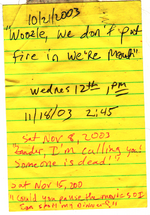 10/21/2003
"Woozle, we don't put
fire in we're mouth"
Wednes 12th, 1PM
11/18/03 2:45
Sat Nov 8, 2003
I'm calling you!
Someone is dead!"
Sat Nov 15, 200
"Could you pause the movie so I
can my dinner?"